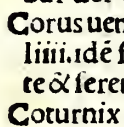 Corus uen
liiii.idē f
te & feren
Coturnix